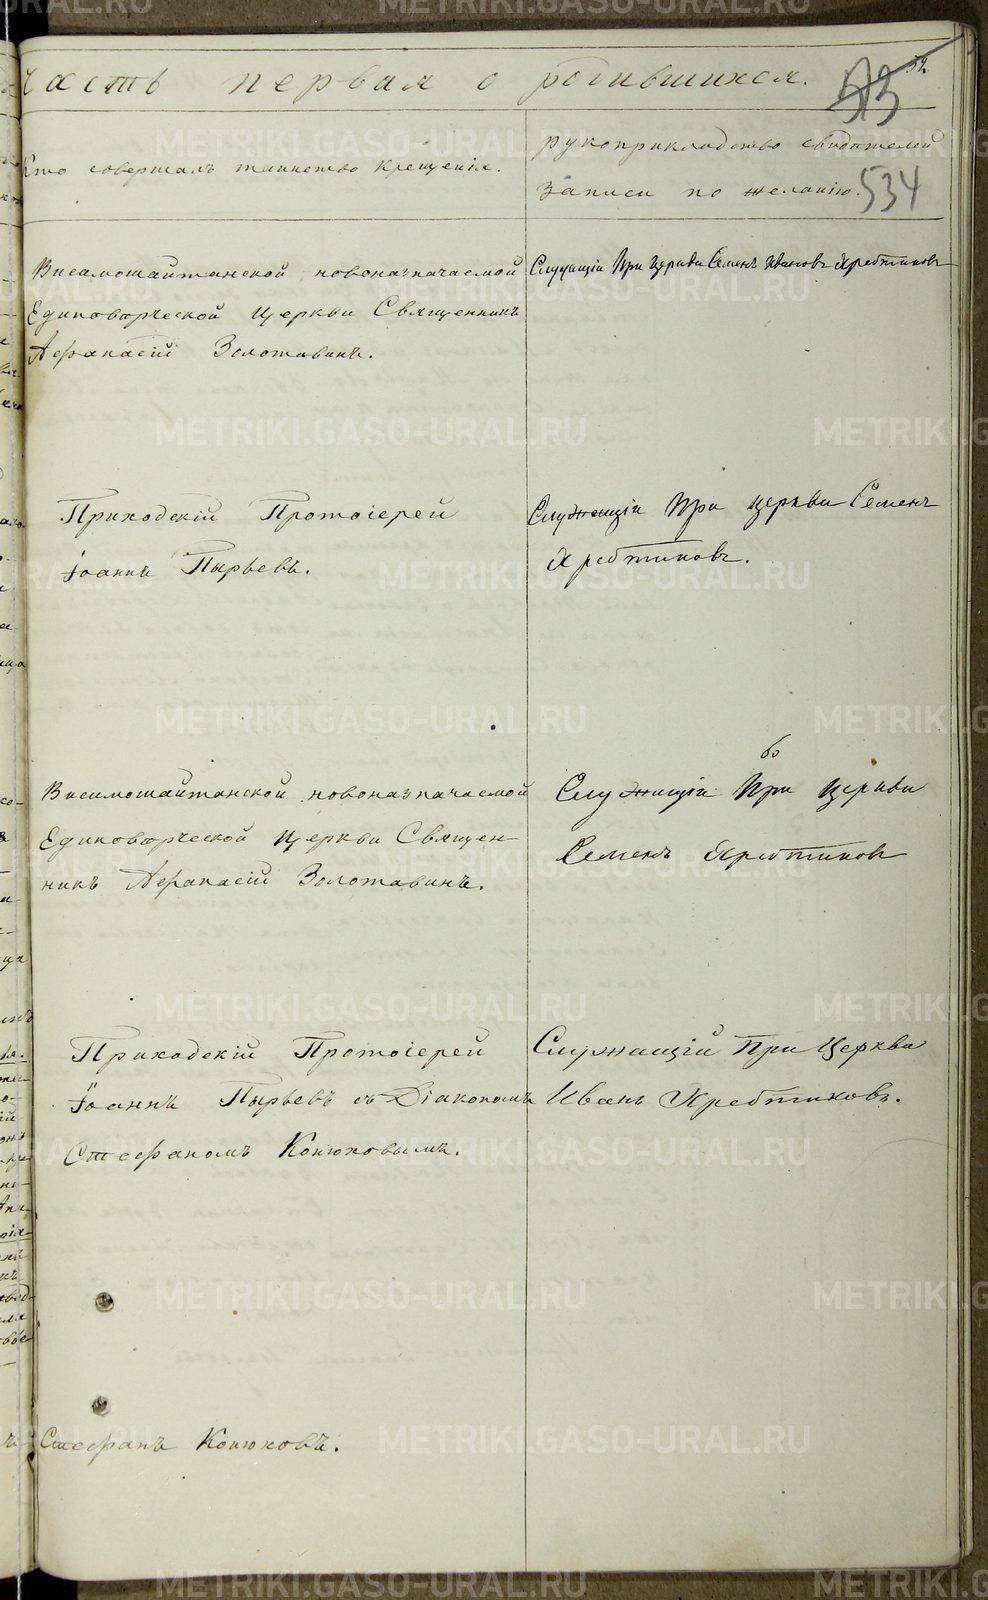 Часть первая о родившихся.
52.
513
Кто совершалъ таинство крещенія.
рукоприкладство свидѣтелей
записи по желанію.
534
Висимошайтанской новоназначаемой
Единовѣрческой Церкви Священникъ
Афанасій Золотавинъ.
Служащій При Церкви Семенъ Ивановъ Хребтиковъ
Приходскій Протоіерей
Іоаннъ Пырьевъ.
Служащій При церкви Семенъ
Хребтиковъ.
Висимошайтанской новоназначаемой
Единовѣрческой Церкви Священ-
никъ Афанасій Золотавинъ.
Служищій При Церкви
Семенъ Хребтиковъ
Приходскій Протоіерей
Іоаннъ Пырьевъ съ Діакономъ
Стефаномъ Конюховымъ.
Служащій При Церкви
Иванъ Хребтиковъ.
Стефанъ Конюховъ.
METRIKI.GASO-URAL.RU